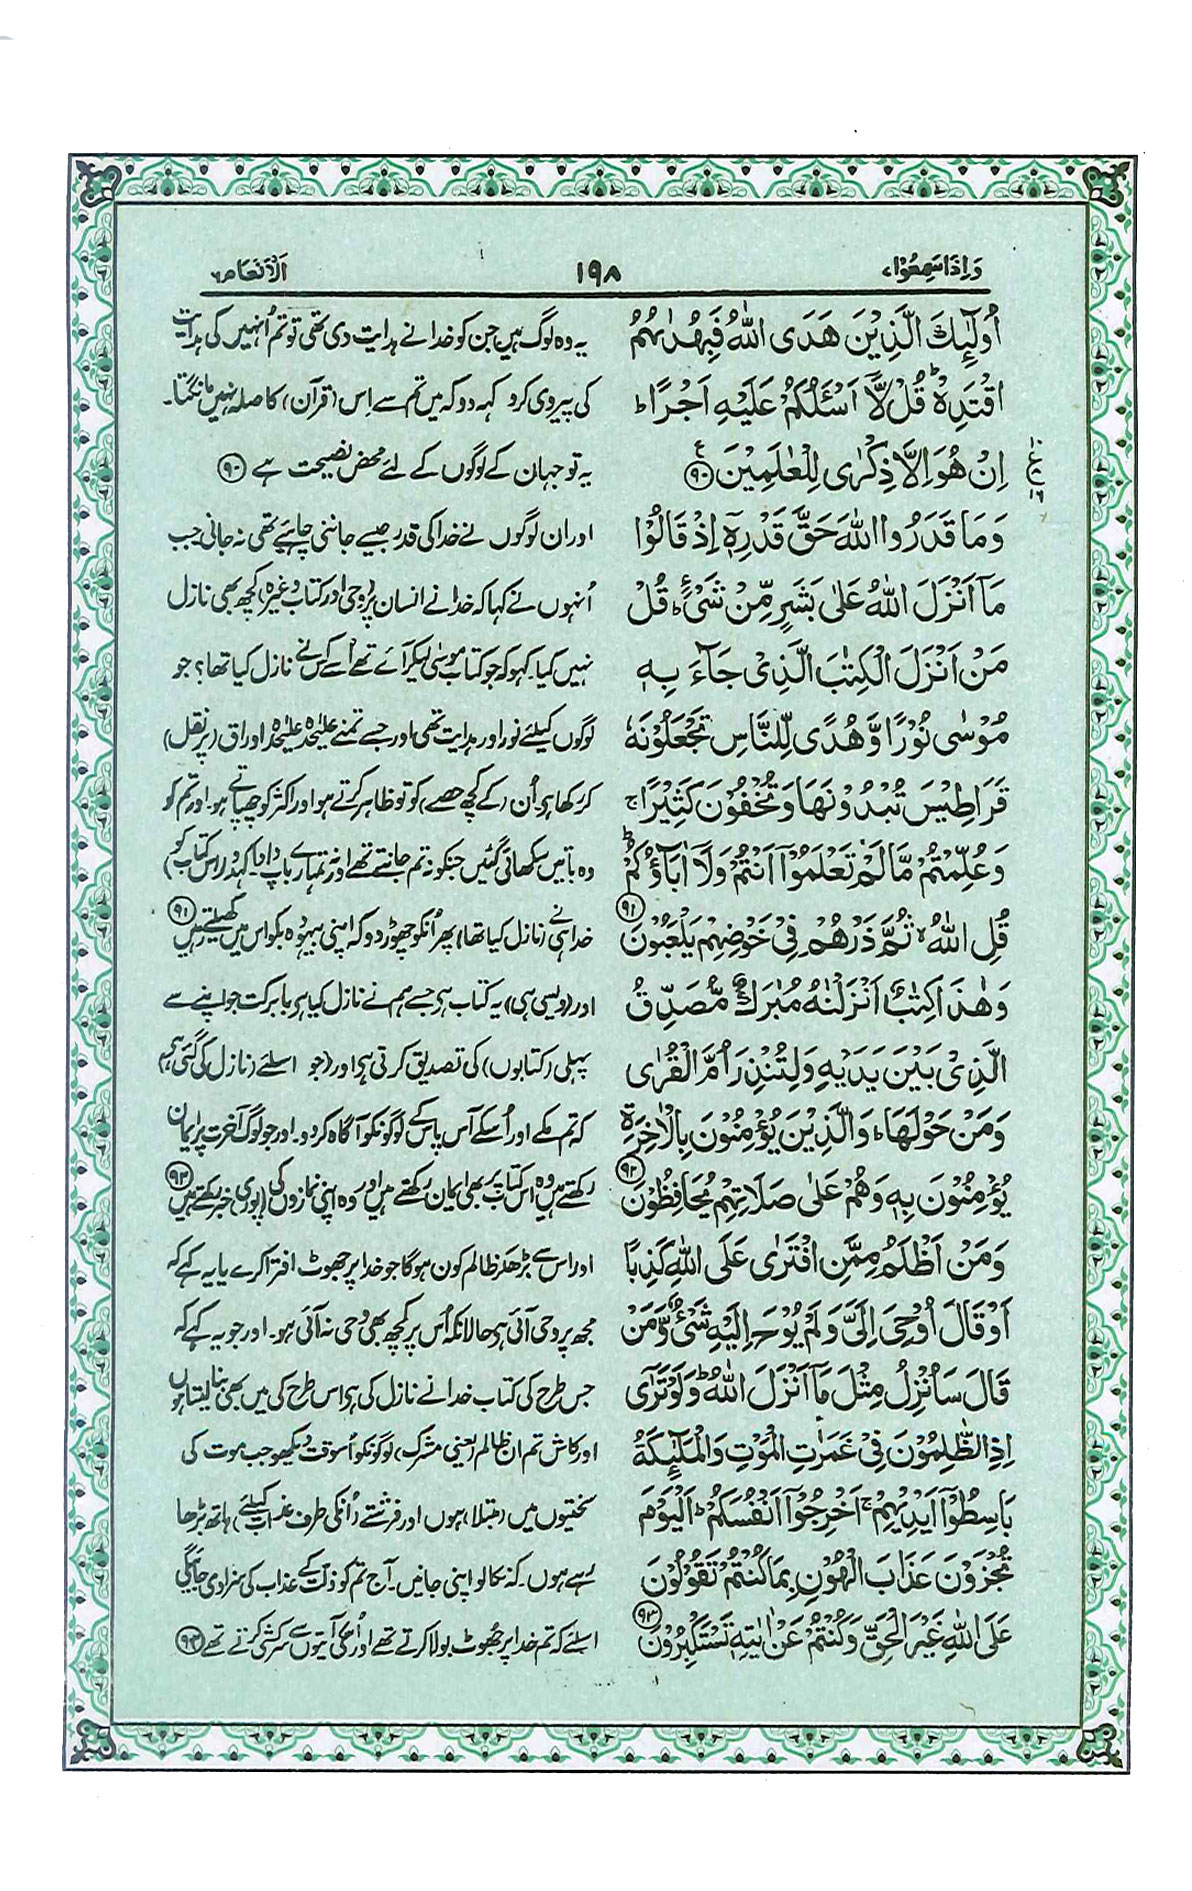 وَاِذَا سَمِعُوْا ٧
١٩٨
اَلْاَنْعَام ٦
اُولٰٓئِكَ الَّذِيْنَ هَدَى اللّٰهُ فَبِهُدٰىهُمُ
اقْتَدِهْ ؕ قُلْ لَّآ اَسْـَٔلُكُمْ عَلَيْهِ اَجْرًا ؕ
اِنْ هُوَ اِلَّا ذِكْرٰى لِلْعٰلَمِيْنَ ﴿٩٠﴾
وَمَا قَدَرُوا اللّٰهَ حَقَّ قَدْرِهٖٓ اِذْ قَالُوْا
مَآ اَنْزَلَ اللّٰهُ عَلٰى بَشَرٍ مِّنْ شَىْءٍ ؕ قُلْ
مَنْ اَنْزَلَ الْكِتٰبَ الَّذِىْ جَآءَ بِهٖ
مُوْسٰى نُوْرًا وَّهُدًى لِّلنَّاسِ تَجْعَلُوْنَهٗ
قَرَاطِيْسَ تُبْدُوْنَهَا وَتُخْفُوْنَ كَثِيْرًا ۚ
وَعُلِّمْتُمْ مَّا لَمْ تَعْلَمُوْٓا اَنْتُمْ وَلَآ اٰبَآؤُكُمْ ؕ
قُلِ اللّٰهُ ۙ ثُمَّ ذَرْهُمْ فِىْ خَوْضِهِمْ يَلْعَبُوْنَ ﴿٩١﴾
وَهٰذَا كِتٰبٌ اَنْزَلْنٰهُ مُبٰرَكٌ مُّصَدِّقُ
الَّذِىْ بَيْنَ يَدَيْهِ وَلِتُنْذِرَ اُمَّ الْقُرٰى
وَمَنْ حَوْلَهَا ؕ وَالَّذِيْنَ يُؤْمِنُوْنَ بِالْاٰخِرَةِ
يُؤْمِنُوْنَ بِهٖ وَهُمْ عَلٰى صَلَاتِهِمْ يُحَافِظُوْنَ ﴿٩٢﴾
وَمَنْ اَظْلَمُ مِمَّنِ افْتَرٰى عَلَى اللّٰهِ كَذِبًا
اَوْ قَالَ اُوْحِىَ اِلَىَّ وَلَمْ يُوْحَ اِلَيْهِ شَىْءٌ وَّمَنْ
قَالَ سَاُنْزِلُ مِثْلَ مَآ اَنْزَلَ اللّٰهُ ؕ وَلَوْ تَرٰٓى
اِذِ الظّٰلِمُوْنَ فِىْ غَمَرٰتِ الْمَوْتِ وَالْمَلٰٓئِكَةُ
بَاسِطُوْٓا اَيْدِيْهِمْ ۚ اَخْرِجُوْٓا اَنْفُسَكُمْ ؕ اَلْيَوْمَ
تُجْزَوْنَ عَذَابَ الْهُوْنِ بِمَا كُنْتُمْ تَقُوْلُوْنَ
عَلَى اللّٰهِ غَيْرَ الْحَقِّ وَكُنْتُمْ عَنْ اٰيٰتِهٖ تَسْتَكْبِرُوْنَ ﴿٩٣﴾
یہ وہ لوگ ہیں جن کو خدا نے ہدایت دی تھی تو تم اُنہیں کی ہدایت
کی پیروی کرو کہہ دو کہ میں تم سے اِس (قرآن) کا صلہ نہیں مانگتا۔
یہ تو جہان کے لوگوں کے لئے محض نصیحت ہے ﴿٩٠﴾
اور ان لوگوں نے خدا کی قدر جیسے جاننی چاہیئے تھی نہ جانی جب
اُنہوں نے کہا کہ خدا نے انسان پر (وحی اور کتاب وغیرہ) کچھ بھی نازل
نہیں کیا۔ کہو کہ جو کتاب موسیٰ لیکر آئے تھے اُسے کس نے نازل کیا تھا؟ جو
لوگوں کیلئے نور اور ہدایت تھی اور جسے تمنے علیٰحدہ علیٰحدہ اوراق (پر نقل)
کر رکھا ہی اُن (کے کچھ حصے) کو تو ظاہر کرتے ہو اور اکثر کو چھپاتے ہو۔ اور تم کو
وہ باتیں سکھائی گئیں جنکو نہ تم جانتے تھے اور نہ تمہارے باپ دادا۔ کہدو (اس کتاب کو)
خدا ہی نے (نازل کیا تھا) پھر اُنکو چھوڑ دو کہ اپنی بیہودہ بکواس میں کھیلتے رہیں ﴿٩١﴾
اور (ویسی ہی) یہ کتاب ہی جسے ہم نے نازل کیا ہی با برکت جو اپنے سے
پہلی (کتابوں) کی تصدیق کرتی ہی اور (جو اسلئے (نازل کی گئی ہی)
کہ تم مکے اور اُسکے آس پاس کے لوگونکو آگاہ کر دو۔ اور جو لوگ آخرت پر ایمان
رکھتے ہیں وہ اس کتاب پر بھی ایمان رکھتے ہیں اور وہ اپنی نمازوں کی (پوری) خبر رکھتے ہیں ﴿٩٢﴾
اور اس سے بڑھکر ظالم کون ہوگا جو خدا پر جھوٹ افترا کرے یا یہ کہے کہ
مجھ پر وحی آئی ہی حالانکہ اُس پر کچھ بھی وحی نہ آئی ہو۔ اور جو یہ کہے کہ
جس طرح کی کتاب خدا نے نازل کی ہی اس طرح کی میں بھی بنا لیتا ہوں
اور کاش تم ان ظالم (یعنی مشرک) لوگونکو اُسوقت دیکھو جب موت کی
سختیوں میں (مبتلا) ہوں اور فرشتے (اُنکی طرف عذاب کیلئے) ہاتھ بڑھا
رہے ہوں۔ کہ نکالو اپنی جانیں۔ آج تم کو ذلت کے عذاب کی سزا دی جائیگی
اسلئے کہ تم خدا پر جھوٹ بولا کرتے تھے اور اُسکی آیتوں سے سرکشی کرتے تھے ﴿٩٣﴾